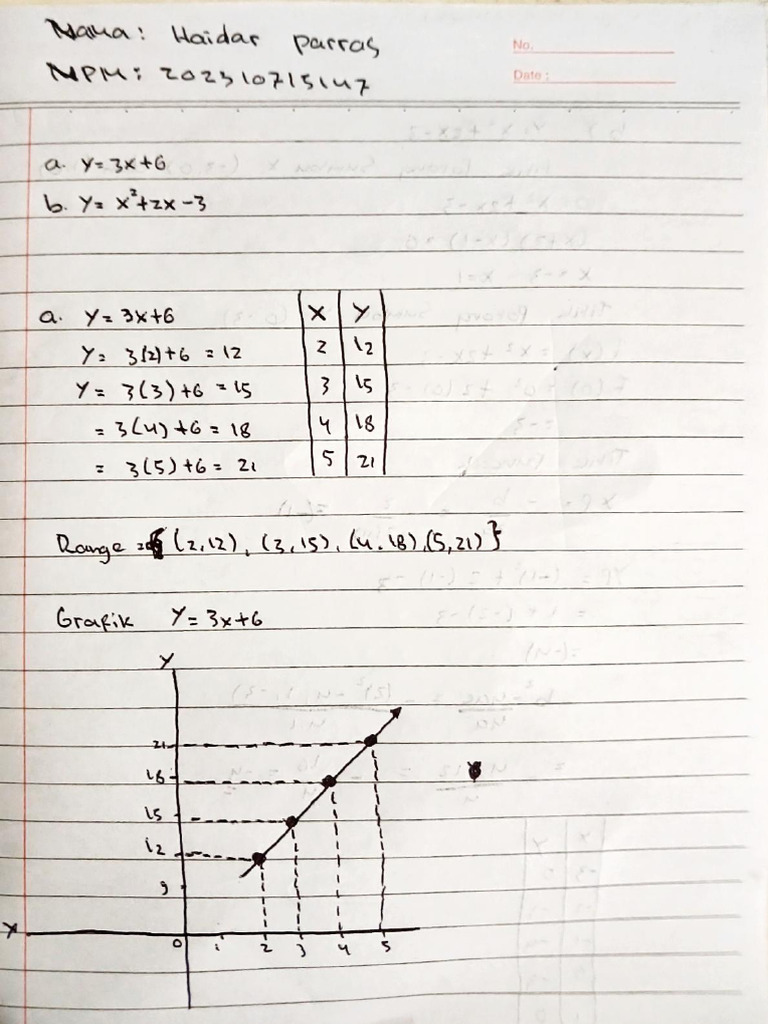 Nama: Haidar parras
No.
NPM: 202310715147
Date:
a. y=3x+6
b. y= x²+2x-3
a. y=3x+6
y= 3(2)+6 = 12
y= 3(3)+6 = 15
= 3(4)+6 = 18
= 3(5)+6 = 21
x y
2 12
3 15
4 18
5 21
Range = { (2,12), (3,15), (4,18), (5,21) }
Grafik y=3x+6
y
21
18
15
12
9
x
0 1 2 3 4 5